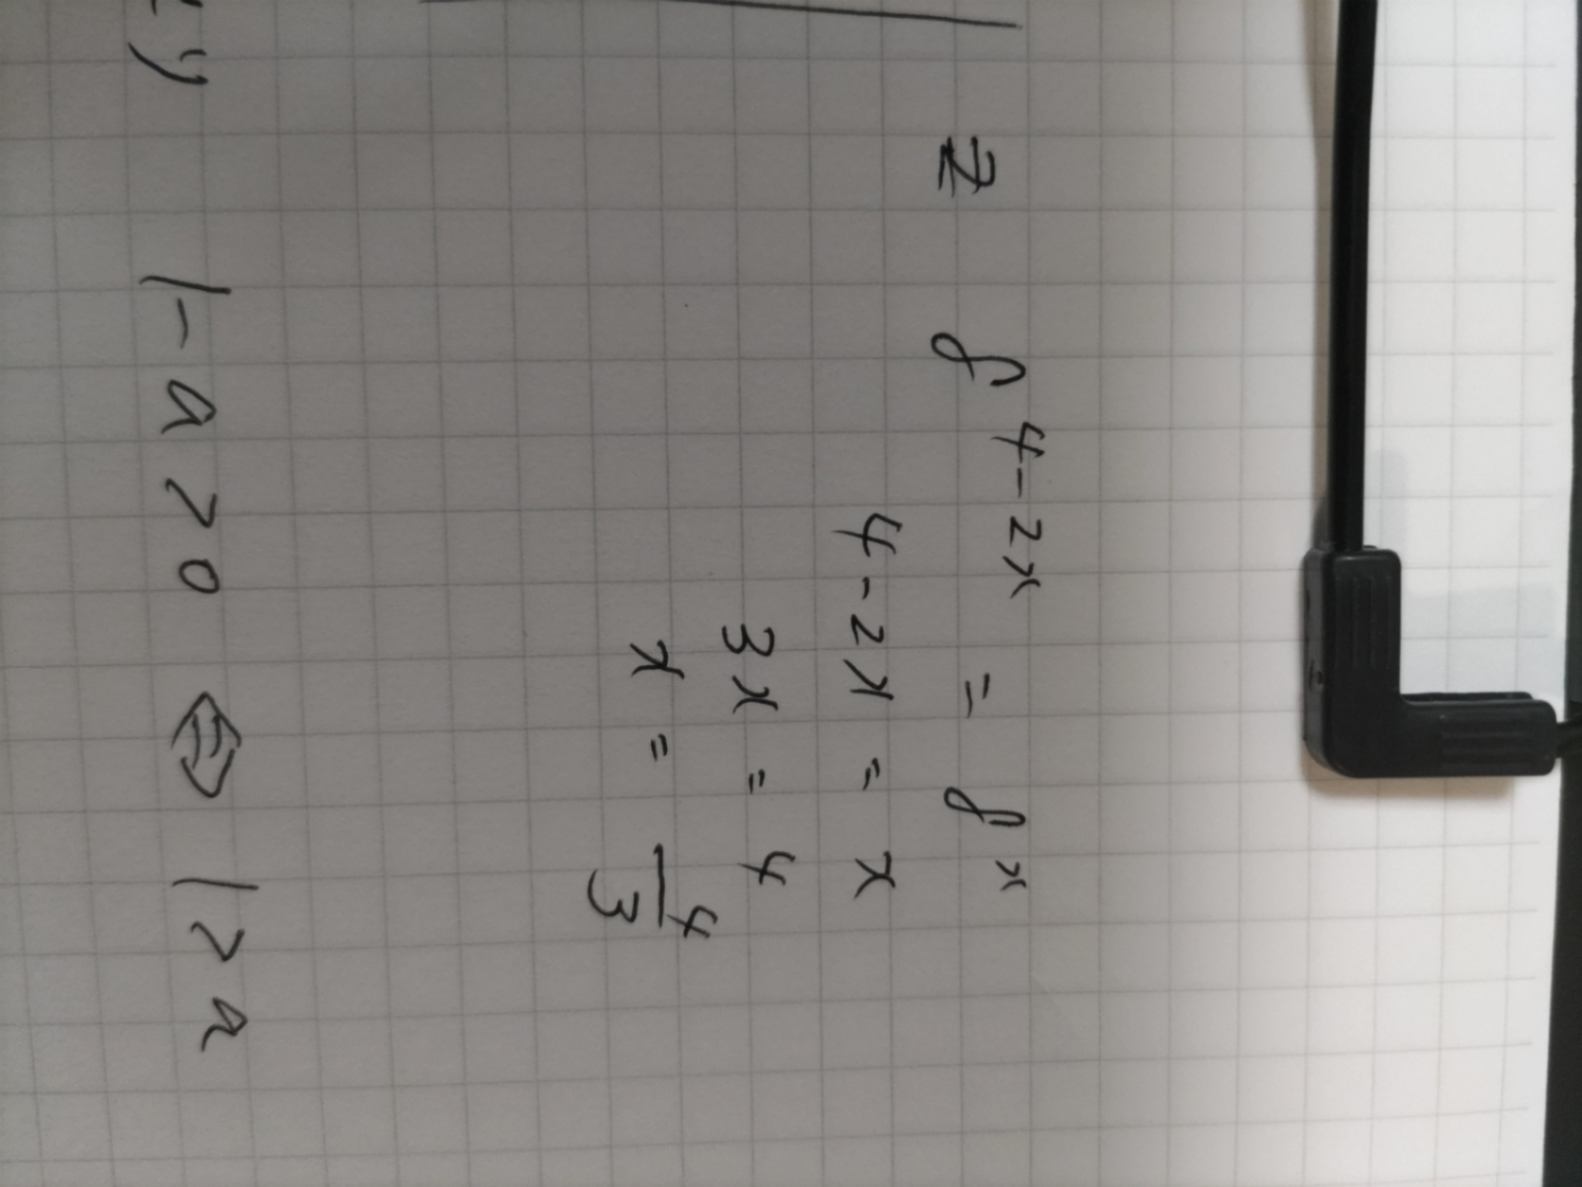 7 f^{4-2x} = f^x
4-2x = x
3x = 4
x = 4/3
y) 1-a>0 ⇔ 1>a